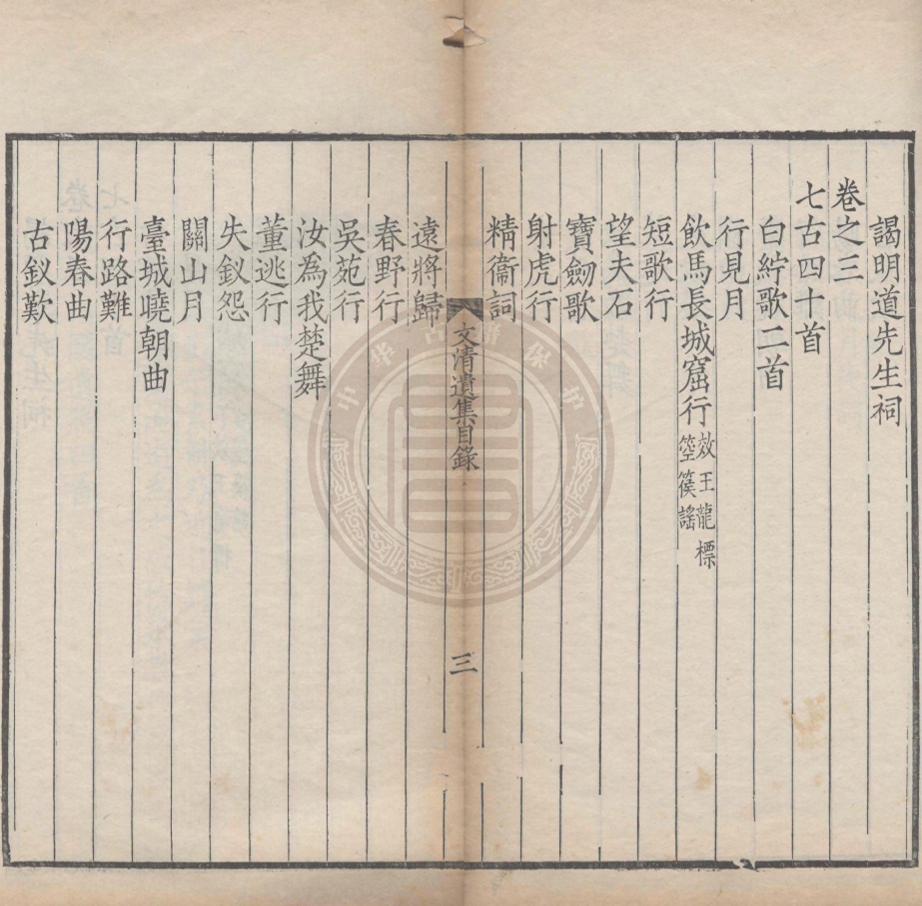 謁明道先生祠
卷之三
七古四十首
白紵歌二首
行見月
飲馬長城窟行效王龍標箜篌謠
短歌行
望夫石
寶劒歌
射虎行
精衞詞
文清遺集目錄
三
遠將歸
春野行
吳苑行
汝爲我楚舞
董逃行
失釵怨
關山月
臺城曉朝曲
行路難
陽春曲
古釵歎
中华古籍保护